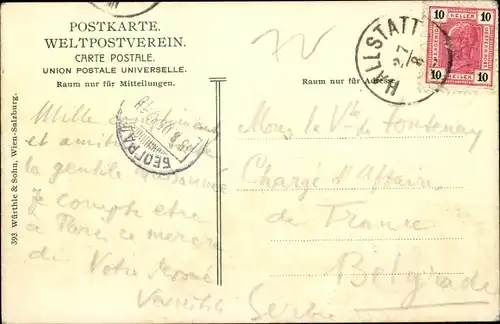 POSTKARTE.
WELTPOSTVEREIN.
CARTE POSTALE.
UNION POSTALE UNIVERSELLE.
Raum nur für Mitteilungen.
Raum nur für Adresse.
HALLSTATT
27
8
10 10
HELLER
10 10
БЕОГРАД
393 Würthle & Sohn, Wien-Salzburg.
Mille
et
la gentille
Je compte être
à Paris ce
de Votre
Mons le Vte de Fontenay
Chargé d'Affaires
de France
Belgrade
Serbie